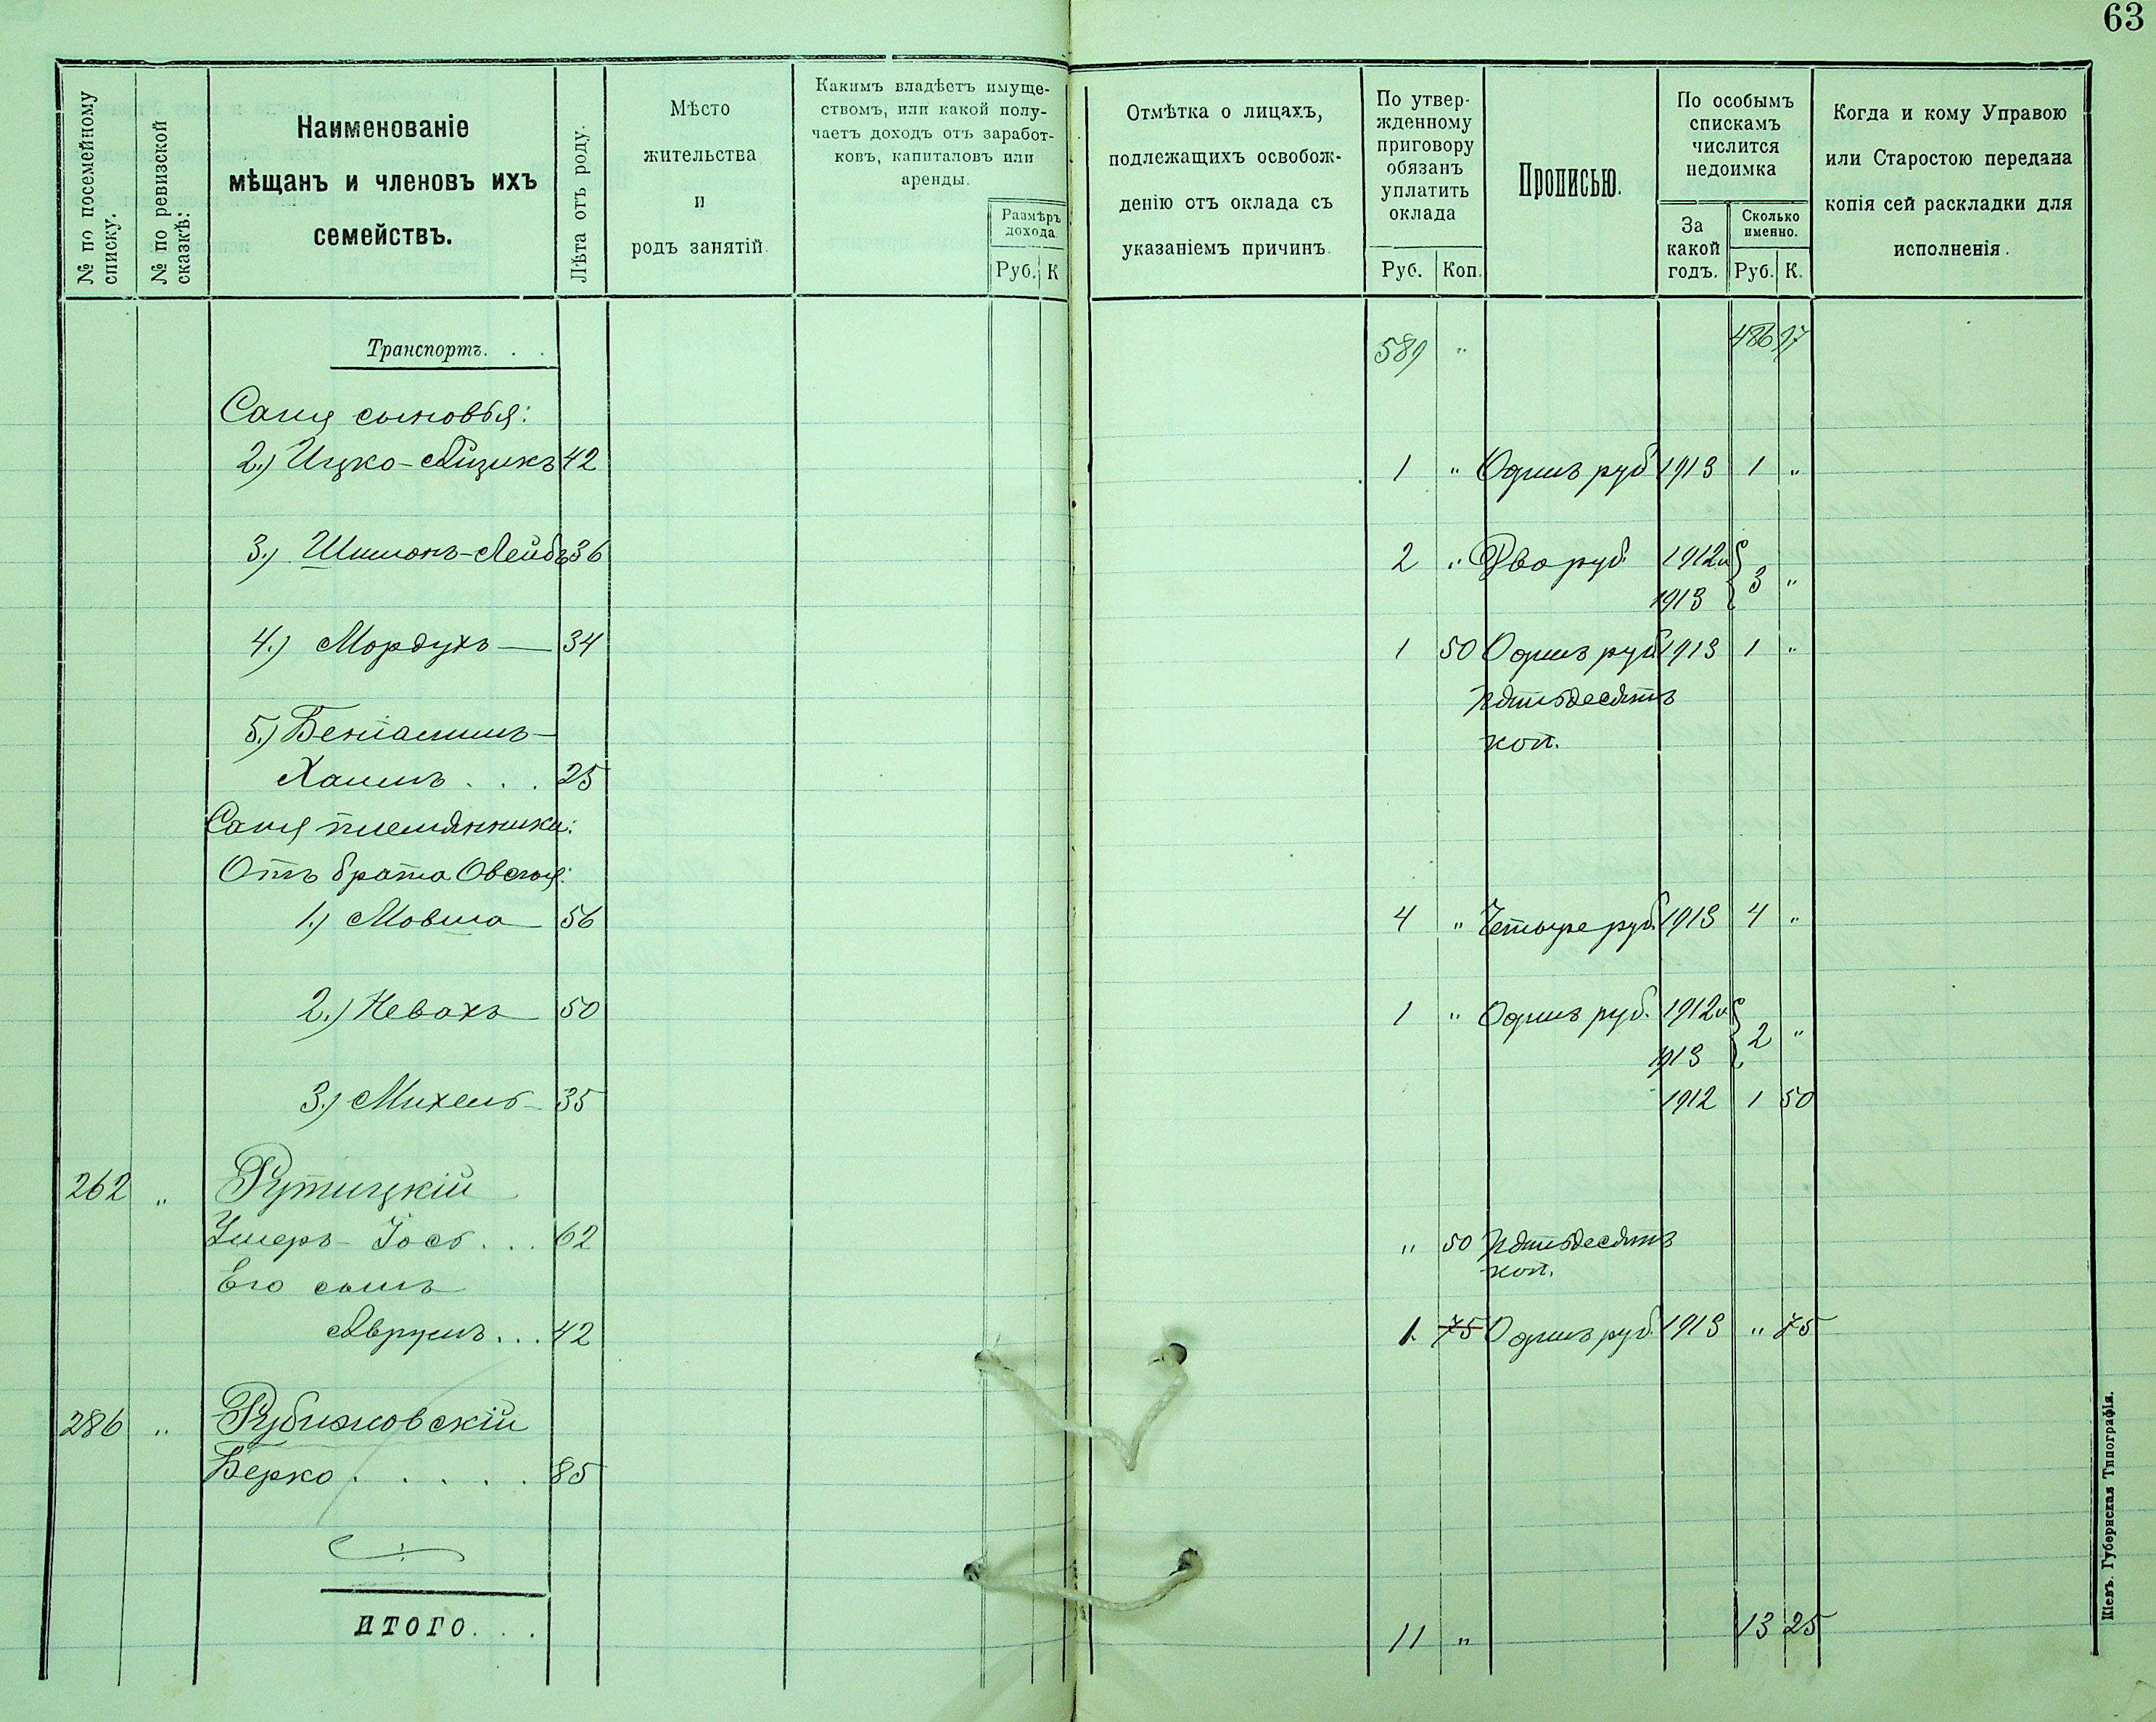 63
№ по посемейному списку.
№ по ревизской сказкѣ:
Наименованіе мѣщанъ и членовъ ихъ семействъ.
Лѣта отъ роду.
Мѣсто жительства и родъ занятій.
Какимъ владѣетъ имуще-
ствомъ, или какой полу-
чаетъ доходъ отъ заработ-
ковъ, капиталовъ или
аренды.
Размѣръ дохода.
Руб. К
Отмѣтка о лицахъ,
подлежащихъ освобож-
денію отъ оклада съ
указаніемъ причинъ.
По утвер-
жденному
приговору
обязанъ
уплатить
оклада
Руб. Коп.
Прописью.
По особымъ
спискамъ
числится
недоимка
За какой годъ.
Сколько именно.
Руб. К.
Когда и кому Управою
или Старостою передана
копія сей раскладки для
исполненія.
Транспортъ. . . 589 " 486 97
сыновья:
2.) Ицко-Айзикъ 42 1 " Одинъ руб 1913 1 "
3.) Шимонъ-Лейбъ 36 2 " Два руб. 1912 и
1913 3 "
4.) Мордухъ — 34 1 50 Одинъ руб 1913 1 "
пятьдесятъ
5.) Беніаминъ- коп.
Хаимъ . . . 25
племянники:
Отъ брата Овсея:
1.) Мовша 56 4 " Четыре руб. 1913 4 "
2.) Невахъ 50 1 " Одинъ руб. 1912 и
1913 2 "
3.) Михель 35 1912 1 50
262 " Рутицкій
Умеръ- Іось . . . 62 " 50 пятьдесятъ
Его сынъ коп.
Аврумъ . . . 42 1. 75 Одинъ руб. 1913 " 75
286 " Рубижовскій
Берко . . . . . 85
ИТОГО. . . 11 " 13 25
Кіевъ. Губернская Типографія.